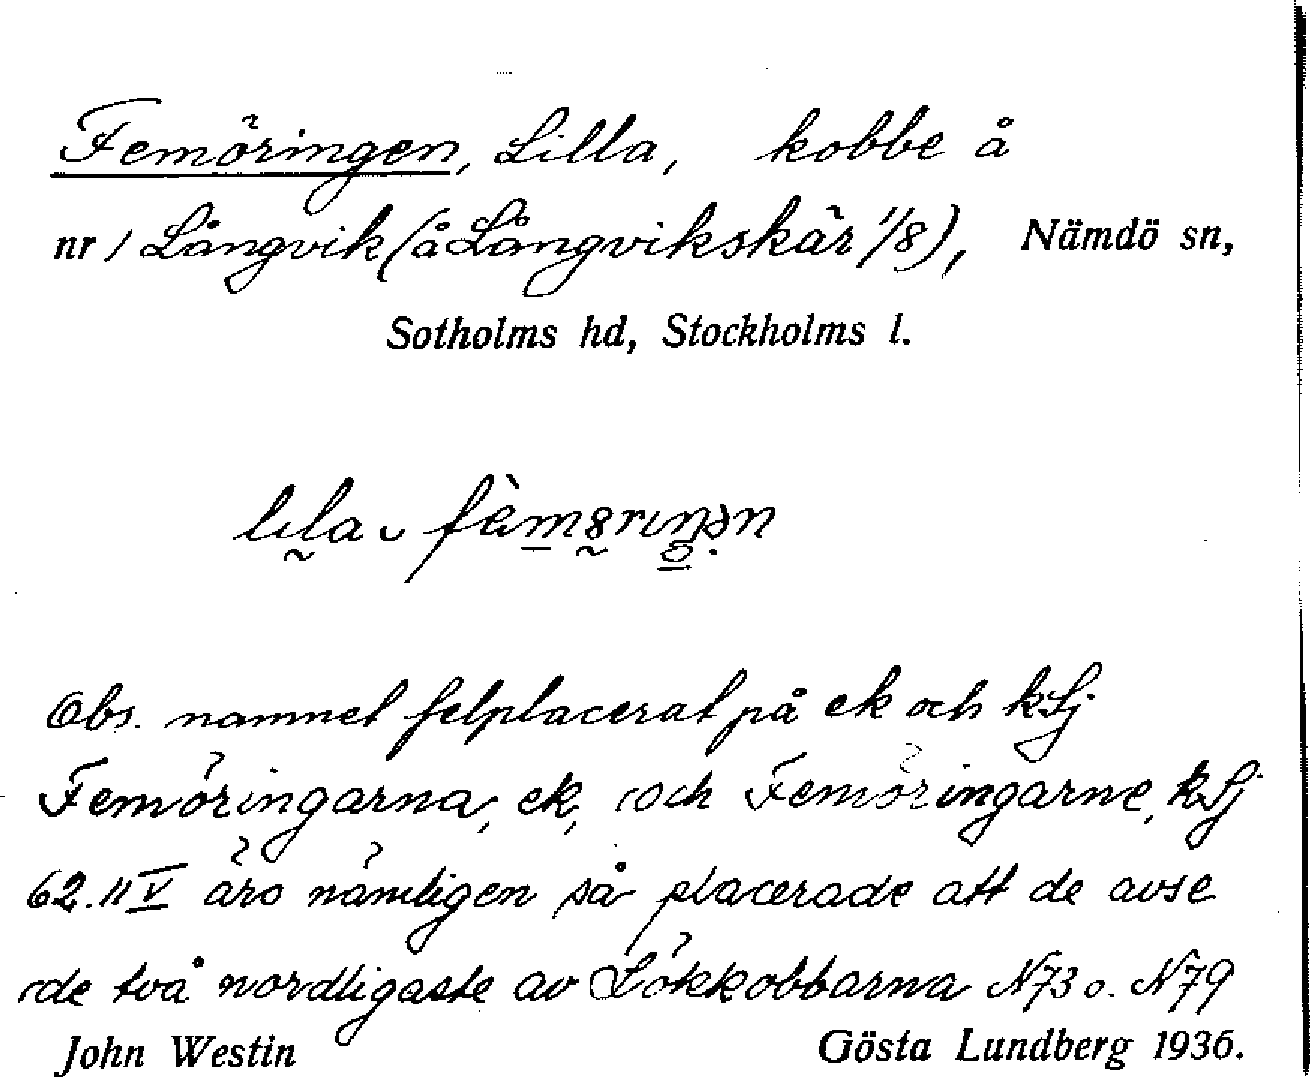 Femöringen, Lilla, kobbe å
nr 1 Långvik (å Långvikskär 1/8), Nämdö sn,
Sotholms hd, Stockholms l.
Obs. namnet felplacerat på ek och kSj
Femöringarna, ek, och Femöringarne, kSj
62. II V äro nämligen så placerade att de avse
de två nordligaste av Lökkobbarna N73 o. N79
John Westin Gösta Lundberg 1936.